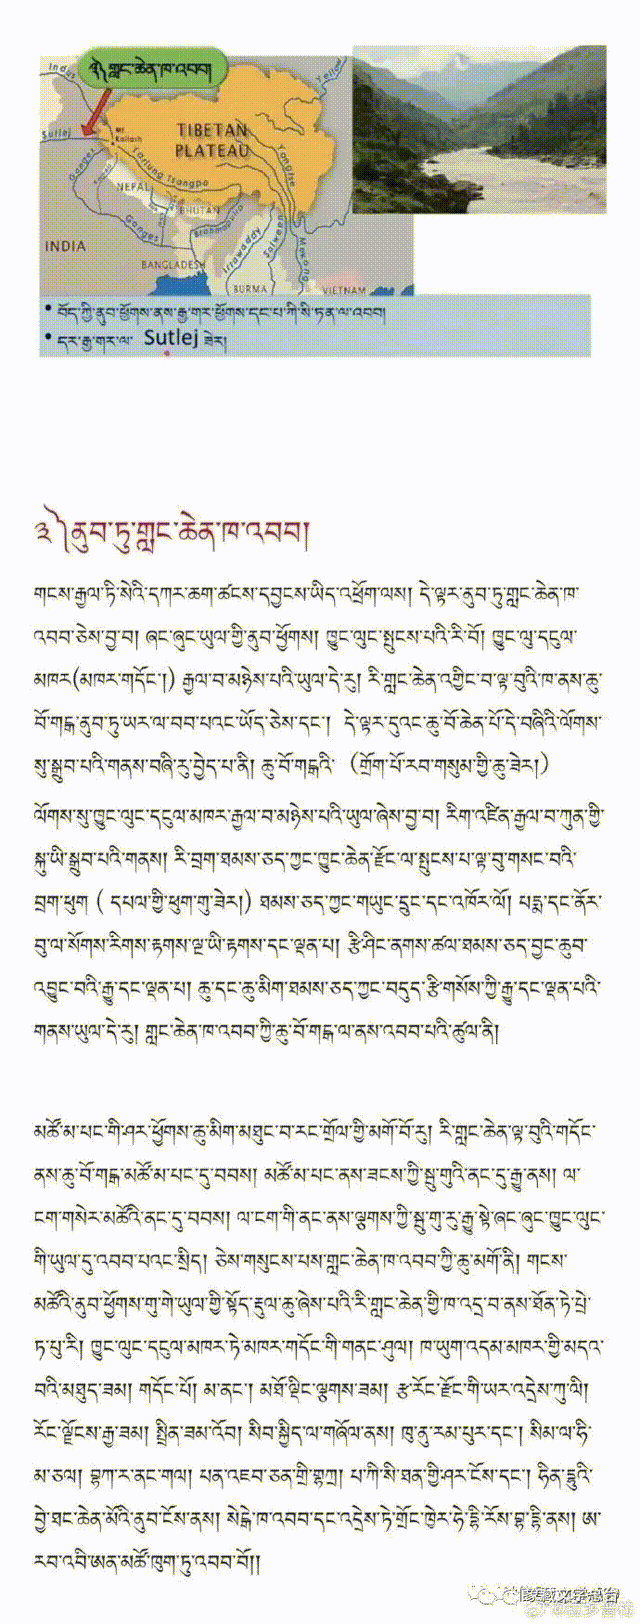 ༣༽གླང་ཆེན་ཁ་འབབ།
Indus
Sutlej
Mt. Kailash
TIBETAN
PLATEAU
Yellow
Ganges
Yarlung Tsangpo
Yangtse
NEPAL
BHUTAN
Ganges
Brahmaputra
INDIA
BANGLADESH
Irrawaddy
Salween
Mekong
BURMA
VIETNAM
• བོད་ཀྱི་ནུབ་ཕྱོགས་ནས་རྒྱ་གར་ཕྱོགས་དང་པ་ཀི་སི་ཏན་ལ་འབབ།
• དར་རྒྱ་གར་ལ་ Sutlej ཟེར།
༣༽ནུབ་ཏུ་གླང་ཆེན་ཁ་འབབ།
གངས་རྒྱལ་ཏི་སེའི་དཀར་ཆག་ཚངས་དབྱངས་ཡིད་འཕྲོག་ལས། དེ་ལྟར་ནུབ་ཏུ་གླང་ཆེན་ཁ་
འབབ་ཅེས་བྱ་བ། ཞང་ཞུང་ཡུལ་གྱི་ནུབ་ཕྱོགས། ཁྱུང་ལུང་སྤུངས་པའི་རི་བོ། ཁྱུང་ལུ་དངུལ་
མཁར(མཁར་གདོང་།) རྒྱལ་བ་མཉེས་པའི་ཡུལ་དེ་རུ། རི་གླང་ཆེན་འགྱིང་བ་ལྟ་བུའི་ཁ་ནས་ཆུ་
བོ་གངྒ་ནུབ་ཏུ་ཡར་ལ་བབ་པའང་ཡོད་ཅེས་དང་། དེ་ལྟར་དུའང་ཆུ་བོ་ཆེན་པོ་དེ་བཞིའི་ལོགས་
སུ་སྒྲུབ་པའི་གནས་བཞི་རུ་བྱེད་པ་ནི། ཆུ་བོ་གངྒའི་ (གྲོག་པོ་རབ་གསུམ་གྱི་ཆུ་ཟེར།)
ལོགས་སུ་ཁྱུང་ལུང་དངུལ་མཁར་རྒྱལ་བ་མཉེས་པའི་ཡུལ་ཞེས་བྱ་བ། རིག་འཛིན་རྒྱལ་བ་ཀུན་གྱི་
སྐུ་ཡི་སྒྲུབ་པའི་གནས། རི་བྲག་ཐམས་ཅད་ཀྱང་ཁྱུང་ཆེན་རྫོང་ལ་སྤུངས་པ་ལྟ་བུ་གསང་བའི་
བྲག་ཕུག ( དཔལ་གྱི་ཕུག་གུ་ཟེར།) ཐམས་ཅད་ཀྱང་གཡུང་དྲུང་དང་འཁོར་ལོ། པདྨ་དང་ནོར་
བུ་ལ་སོགས་རིགས་རྟགས་ལྔ་ཡི་རྟགས་དང་ལྡན་པ། རྩི་ཤིང་ནགས་ཚལ་ཐམས་ཅད་བྱང་ཆུབ་
འབྱུང་བའི་རྒྱུ་དང་ལྡན་པ། ཆུ་དང་ཆུ་མིག་ཐམས་ཅད་ཀྱང་བདུད་རྩི་གསོས་ཀྱི་རྒྱུ་དང་ལྡན་པའི་
གནས་ཡུལ་དེ་རུ། གླང་ཆེན་ཁ་འབབ་ཀྱི་ཆུ་བོ་གངྒ་ལ་ནས་འབབ་པའི་ཚུལ་ནི།
མཚོ་མ་པང་གི་ཤར་ཕྱོགས་ཆུ་མིག་མཐུང་བ་རང་གྲོལ་གྱི་མགོ་བོ་རུ། རི་གླང་ཆེན་ལྟ་བུའི་གདོང་
ནས་ཆུ་བོ་གངྒ་མཚོ་མ་པང་དུ་བབས། མཚོ་མ་པང་ནས་ཟངས་ཀྱི་སྦུ་གུའི་ནང་དུ་རྒྱུ་ནས། ལ་
ངག་གསེར་མཚོའི་ནང་དུ་བབས། ལ་ངག་གི་ནང་ནས་ལྕགས་ཀྱི་སྦུ་གུ་རུ་རྒྱུ་སྟེ་ཞང་ཞུང་ཁྱུང་ལུང་
གི་ཡུལ་དུ་འབབ་པའང་སྲིད། ཅེས་གསུངས་པས་གླང་ཆེན་ཁ་འབབ་ཀྱི་ཆུ་མགོ་ནི། གངས་
མཚོའི་ནུབ་ཕྱོགས་གུ་གེ་ཡུལ་གྱི་སྟོད་རྡུལ་ཆུ་ཞེས་པའི་རི་གླང་ཆེན་གྱི་ཁ་འདྲ་བ་ནས་ཐོན་ཏེ་པྲེ་
ཏ་པུ་རི། ཁྱུང་ལུང་དངུལ་མཁར་ཏེ་མཁར་གདོང་གི་གནང་ཤུལ། ཁ་ཡུག་འདམ་མཁར་གྱི་མདའ་
བའི་མཐུད་ཟམ། གདོང་པོ། མ་ནང་། མཐོ་ལྡིང་ལྕགས་ཟམ། རྩ་རོང་རྫོང་གི་ཡར་འདྲེས་ཀུ་ལི།
རོང་ལྗོངས་རྒྱ་ཟམ། སྤྲིན་ཟམ་འོབ། སིབ་སྐྱིད་ལ་གཞོལ་ནས། ཁུ་ནུ་རམ་པུར་དང་། སིམ་ལ་ཧི་
མ་ཅལ། བྷཀ་ར་ནང་གལ། པན་འཇབ་ཅན་གྲི་གྷཀྲ། པ་ཀི་སི་ཐན་གྱི་ཤར་ངོས་དང་། ཧིན་དྷུའི་
བྱེ་ཐང་ཆེན་མོའི་ནུབ་ངོས་ནས། སེངྒེ་ཁ་འབབ་དང་འདྲེས་ཏེ་གྲོང་ཁྱེར་ཧེ་དྷི་རོས་བྷ་དྷི་ནས། ཨ་
རབ་འབི་ཨན་མཚོ་ཁུག་ཏུ་འབབ་བོ།།